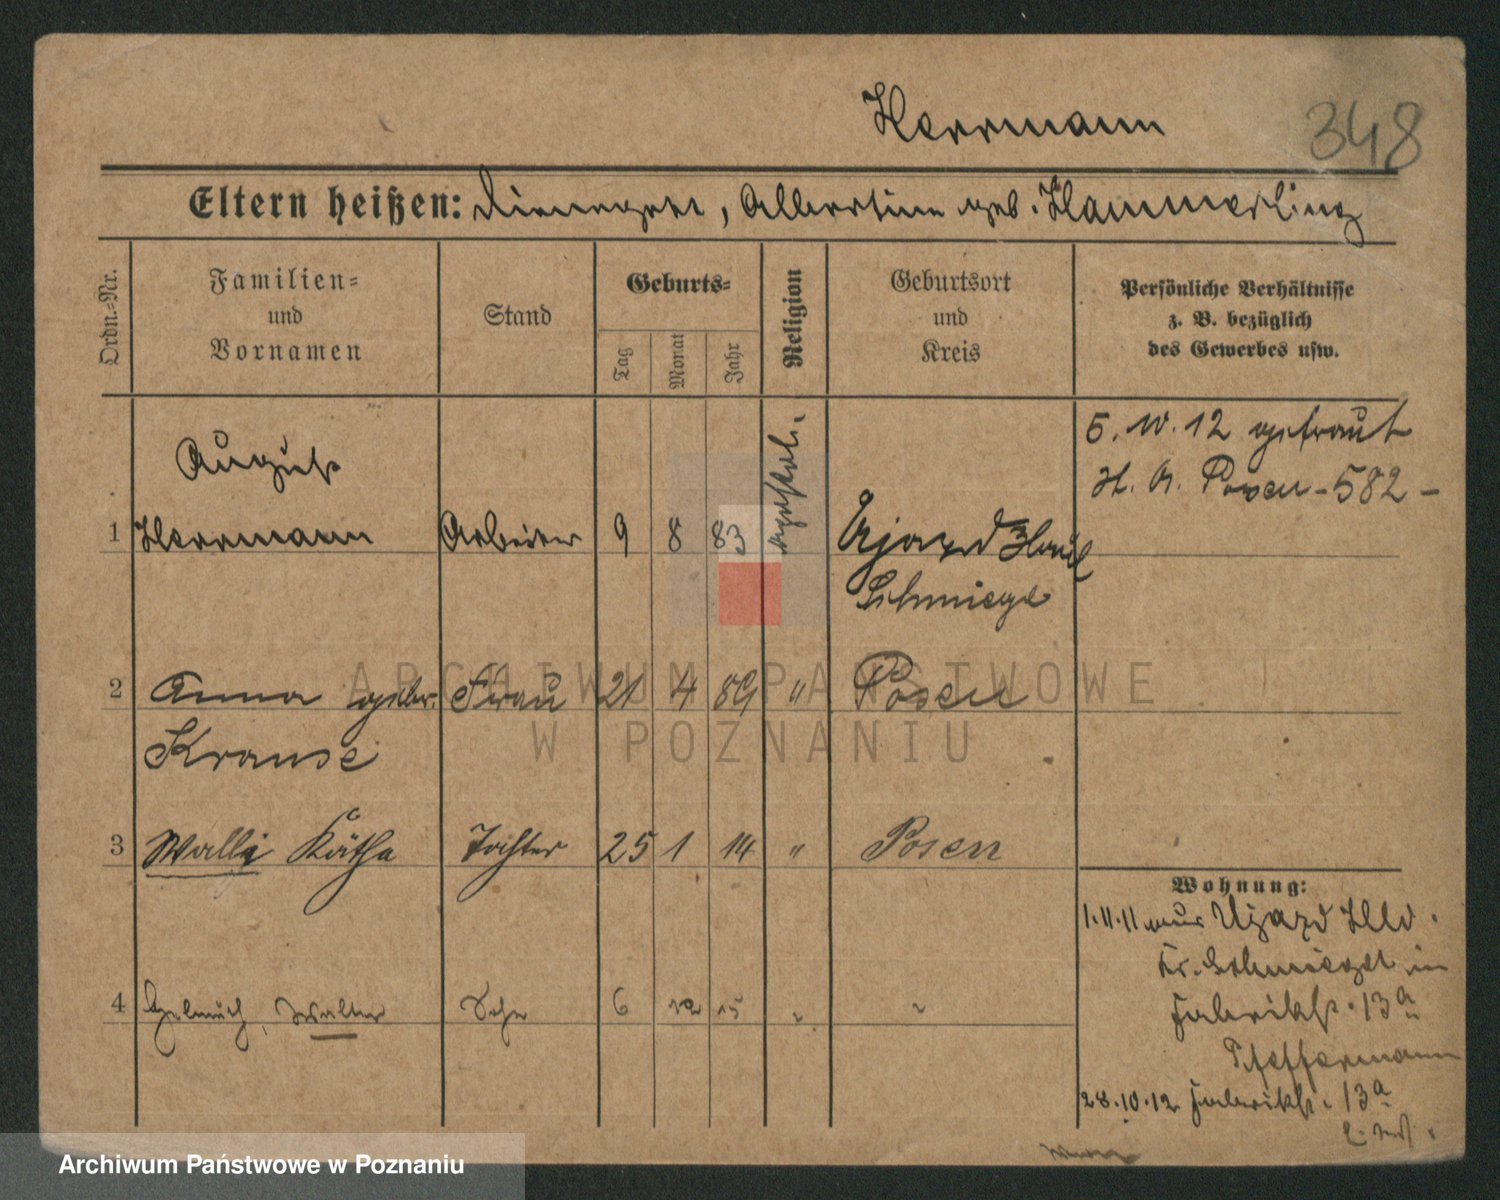 Herrmann
348
Eltern heißen: Albertine geb. Hammerling
Ordn.-Nr.
Familien-
und
Vornamen
Stand
Geburts-
Tag
Monat
Jahr
Religion
Geburtsort
und
Kreis
Persönliche Verhältnisse
z. B. bezüglich
des Gewerbes usw.
5. 10. 12 getraut
St. A. Posen - 582 -
August
1 Herrmann Arbeiter 9 8 83 Ujazd Haul
Schmiegel
2 Anna gebr. Frau 21 4 89 " Posen
Krause
3 Walli Käthe Tochter 25 1 14 " Posen
4 Helmuth, Walter Sohn 6 12 15 " "
Wohnung:
1.11.11 aus Ujazd Hld.
Kr. Schmiegel in
Fabrikstr. 13a
Pfeffermann
28.10.12 Fabrikstr. 13a
ARCHIWUM PAŃSTWOWE
W POZNANIU
Archiwum Państwowe w Poznaniu